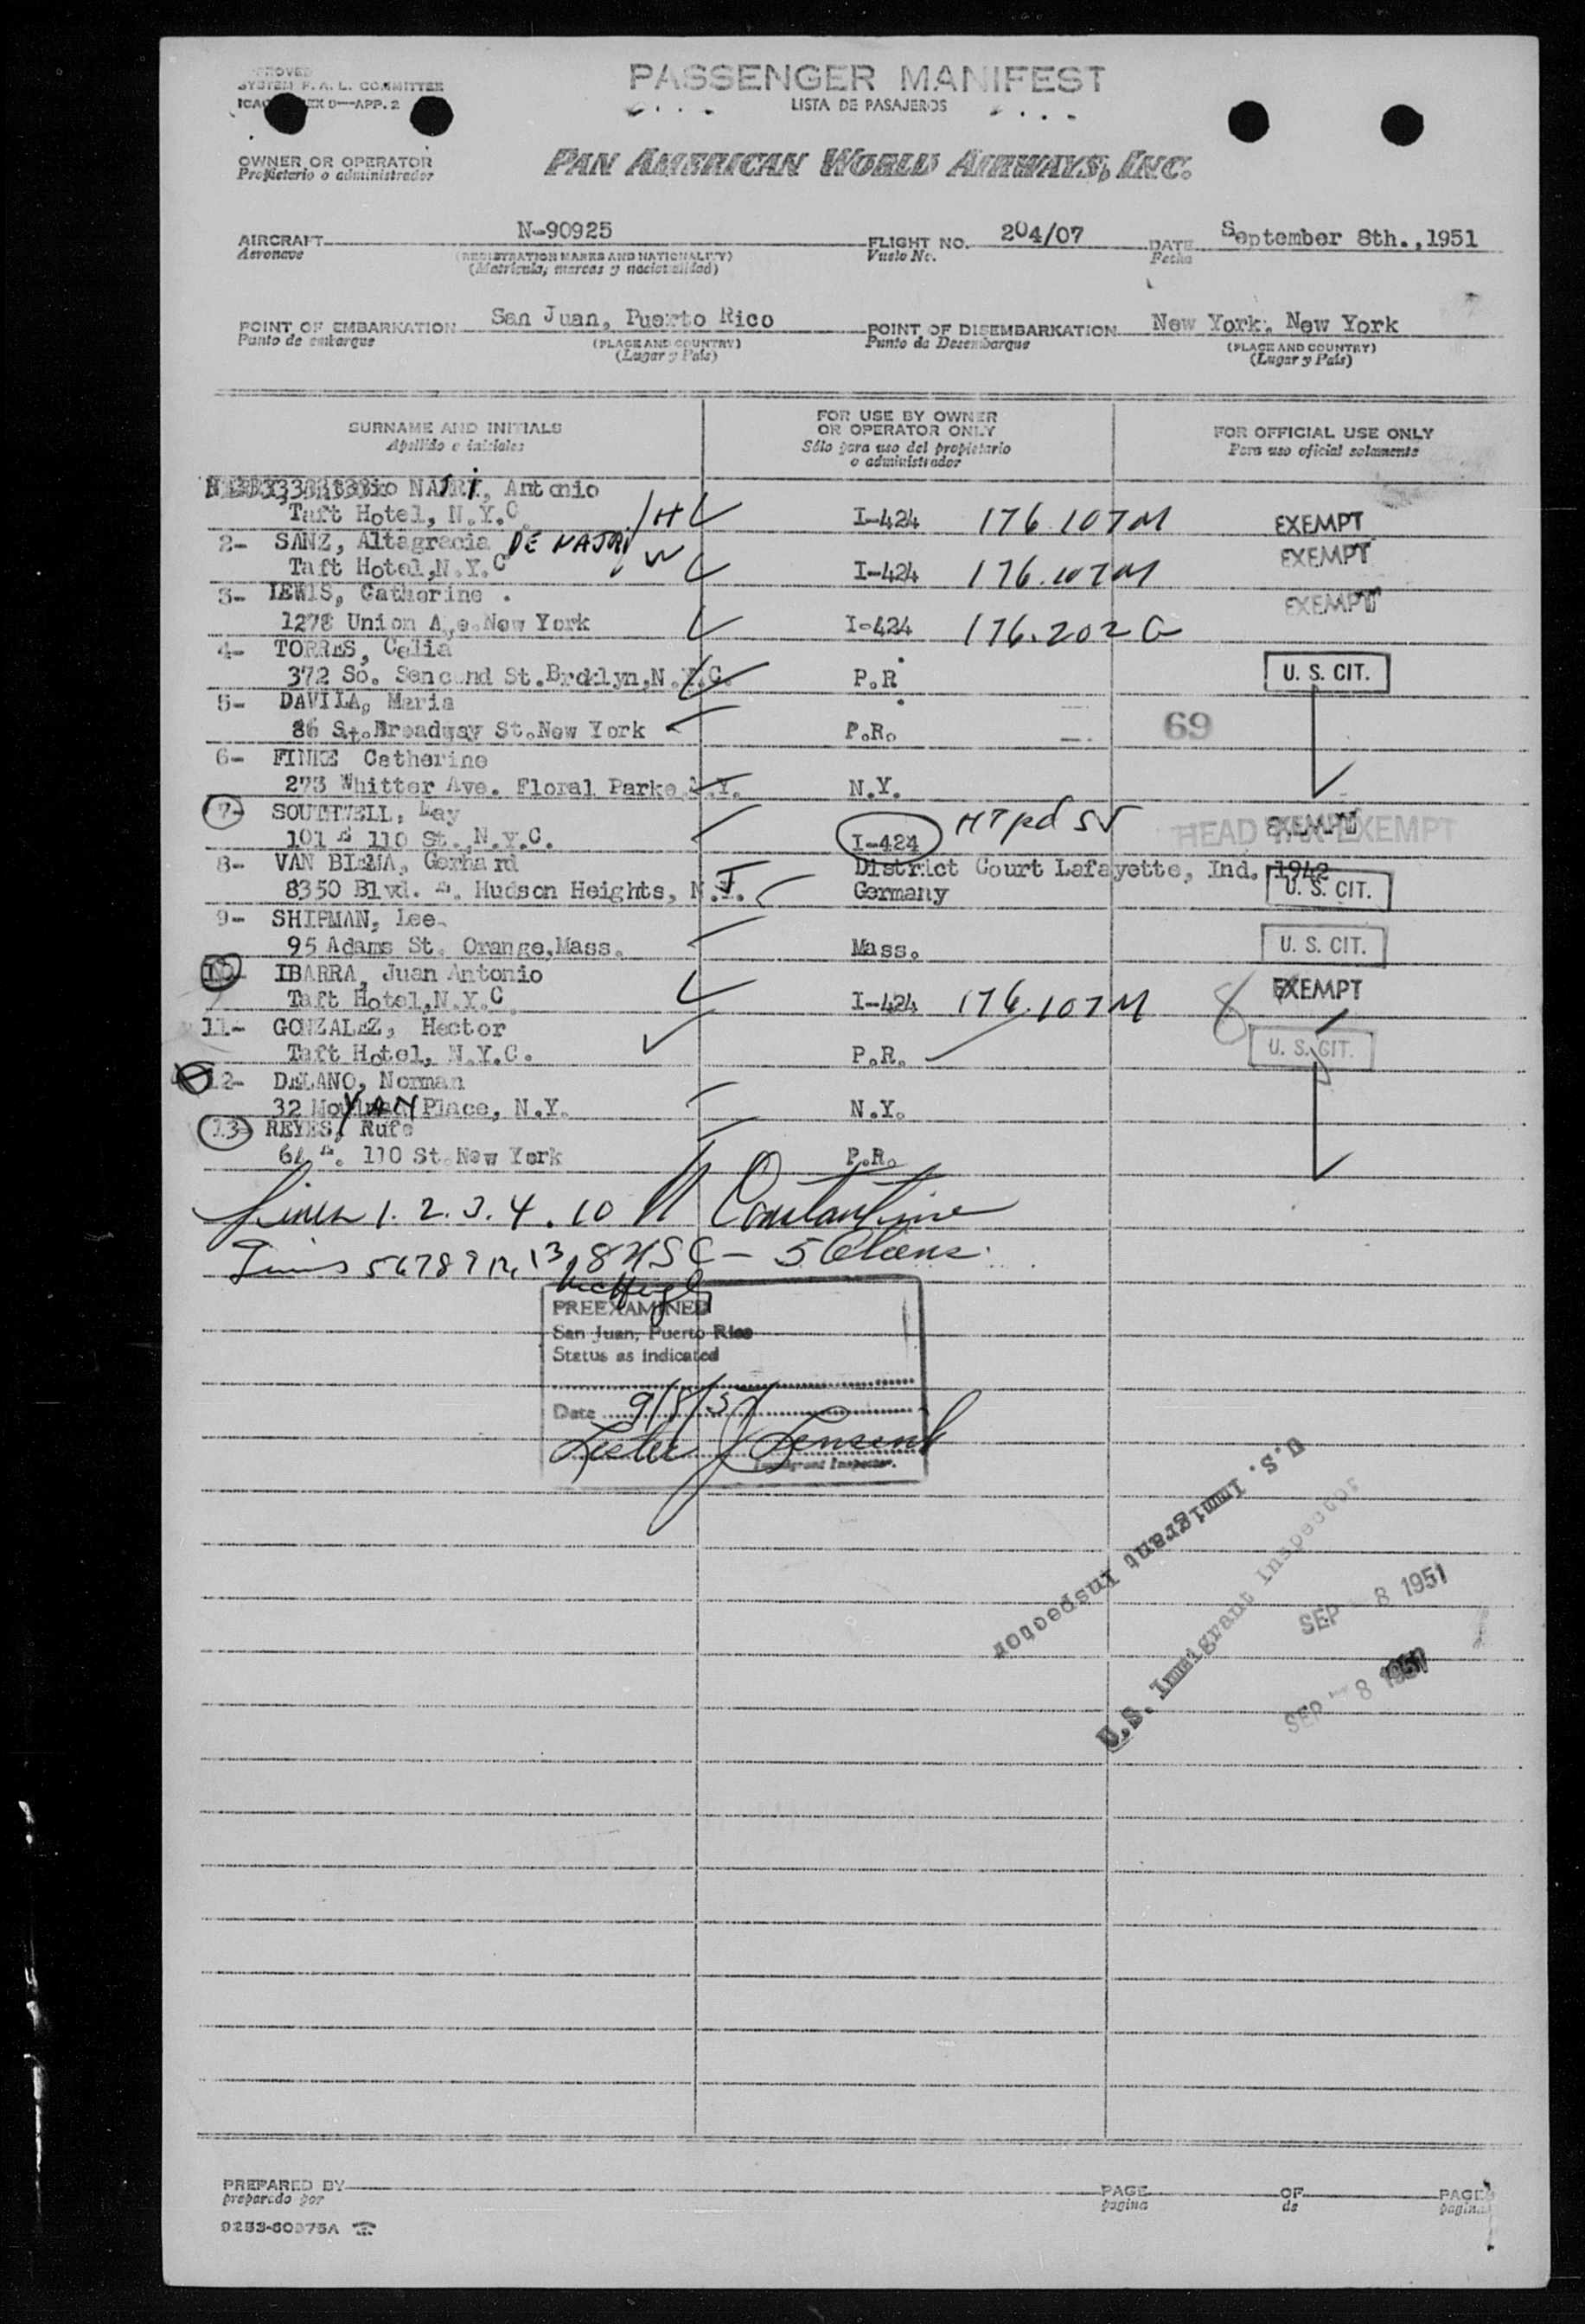 SYSTEM F. A. L. COMMITTEE
PASSENGER MANIFEST
LISTA DE PASAJEROS
OWNER OR OPERATOR
Propietario o administrador
PAN AMERICAN WORLD AIRWAYS, INC.
AIRCRAFT N-90925 FLIGHT NO. 204/07 DATE September 8th.,1951
Aeronave (REGISTRATION MARKS AND NATIONALITY) Vuelo No. Fecha
(Matricula, marcas y nacionalidad)
POINT OF EMBARKATION San Juan, Puerto Rico POINT OF DISEMBARKATION New York, New York
Punto de embarque (PLACE AND COUNTRY) Punto de Desembarque (PLACE AND COUNTRY)
(Lugar y Pais) (Lugar y Pais)
SURNAME AND INITIALS FOR USE BY OWNER OR OPERATOR ONLY FOR OFFICIAL USE ONLY
Apellido e iniciales Sólo para uso del propietario o administrador Para uso oficial solamente
NAJRI, Antonio
Taft Hotel, N.Y.C. H I-424 176.107M EXEMPT
2- SANZ, Altagracia DE NAJRI EXEMPT
Taft Hotel,N.Y.C W I-424 176.107M
3- LEWIS, Catherine . EXEMPT
1278 Union A e.New York I-424 176.202 G
4- TORRES, Celia
372 So. Sencond St.Brcklyn,N.Y.C. P.R U. S. CIT.
5- DAVILA, Maria
86 St.Broadway St.New York P.R. 69
6- FINKE Catherine
273 Whitter Ave. Floral Parke N.Y. N.Y.
7- SOUTHWELL, Lay HT pd SJ
101 E 110 St.,N.Y.C. I-424 HEAD TAX EXEMPT
8- VAN BIEMA, Gerhard District Court Lafayette, Ind. 1942
8350 Blvd. E. Hudson Heights, N.J. Germany U. S. CIT.
9- SHIPMAN, Lee
95 Adams St. Orange,Mass. Mass. U. S. CIT.
10- IBARRA, Juan Antonio EXEMPT
Taft Hotel,N.Y.C I-424 176.107M 8
11- GONZALEZ, Hector
Taft Hotel, N.Y.C. P.R. U. S. CIT.
12- DELANO, Norman
32 Place, N.Y. N.Y.
13- REYES, Rufo
64 E. 110 St.New York P.R.
Lines 1. 2. 3. 4. 10 11 Constantine
Lines 5 6 7 8 9 12, 13, 8 USC - 5 aliens.
McHugh
PREEXAMINED
San Juan, Puerto Rico
Status as indicated
Date 9/8/51
Lester J
Immigrant Inspector.
U.S. Immigrant Inspector
U.S. Immigrant Inspector
SEP - 8 1951
SEP - 8 1951
PREPARED BY PAGE OF PAGE
preparado por pagina de pagina
9253-60375A